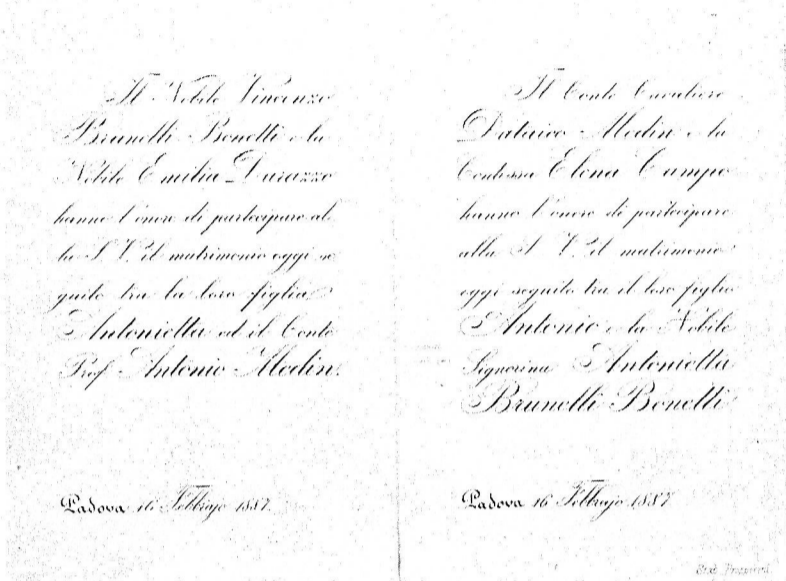 Il Nobile Vincenzo
Brunelli Bonetti e la
Nobile Emilia Durazzo
hanno l'onore di partecipare al
la S. V. il matrimonio oggi se
guito tra la loro figlia
Antonietta ed il Conte
Prof. Antonio Medin.
Padova 16 Febbrajo 1887.
Il Conte Cavaliere
Medin e la
Contessa Elena Campo
hanno l'onore di partecipare
alla S. V. il matrimonio
oggi seguito tra il loro figlio
Antonio e la Nobile
Signorina Antonietta
Brunelli Bonetti
Padova 16 Febbrajo 1887